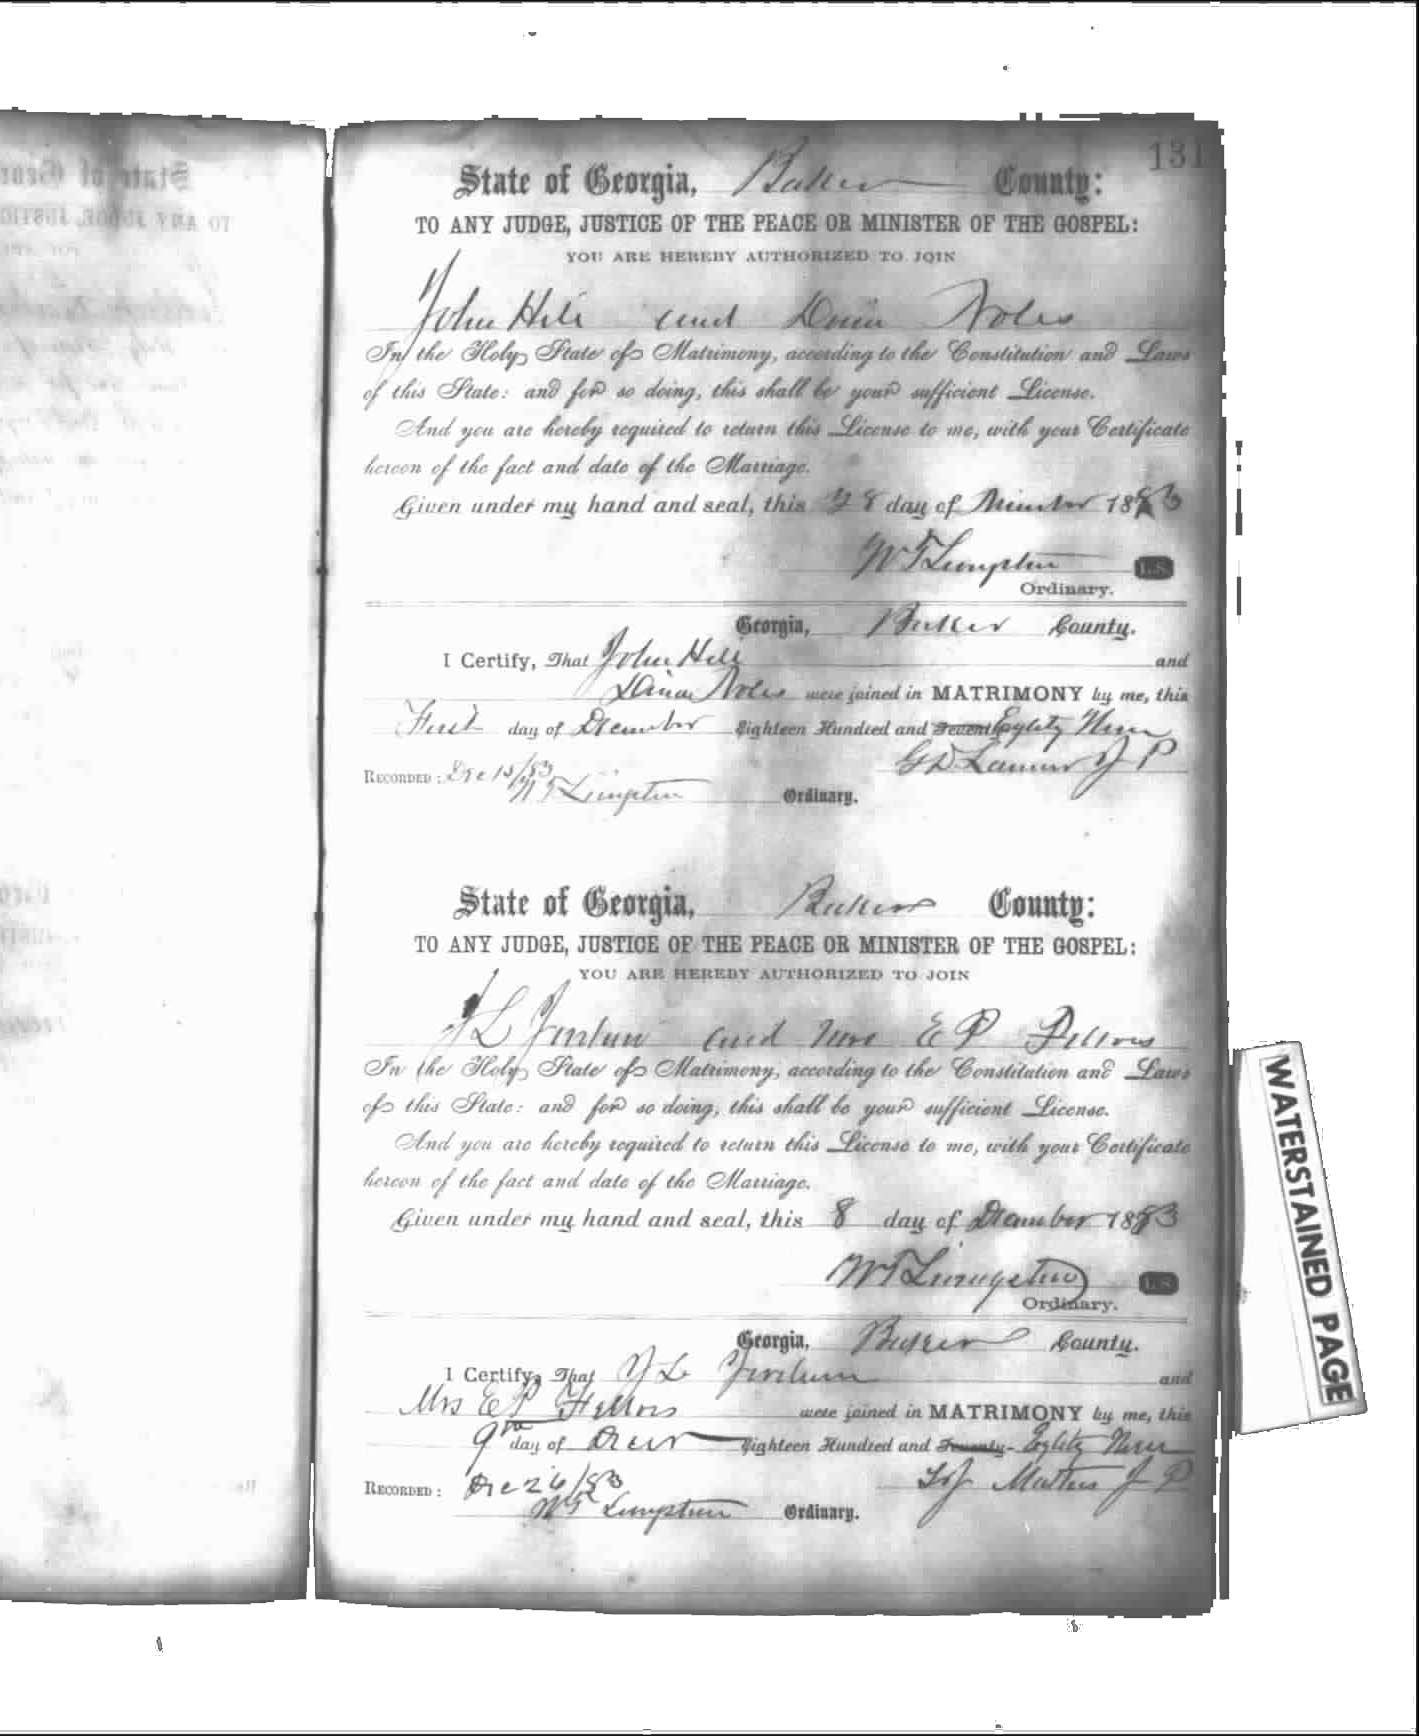 131
State of Georgia, Baker County:
TO ANY JUDGE, JUSTICE OF THE PEACE OR MINISTER OF THE GOSPEL:
YOU ARE HEREBY AUTHORIZED TO JOIN
John Hill and Noles
In the Holy State of Matrimony, according to the Constitution and Laws
of this State: and for so doing, this shall be your sufficient License.
And you are hereby required to return this License to me, with your Certificate
hereon of the fact and date of the Marriage.
Given under my hand and seal, this 28 day of 1883
W T Livingston L.S.
Ordinary.
Georgia, Baker County.
I Certify, That John Hill and
Noles were joined in MATRIMONY by me, this
First day of December Eighteen Hundred and
J P
RECORDED: Dec 15/83
W T Livingston Ordinary.
State of Georgia, Baker County:
TO ANY JUDGE, JUSTICE OF THE PEACE OR MINISTER OF THE GOSPEL:
YOU ARE HEREBY AUTHORIZED TO JOIN
L and Mrs E P
In the Holy State of Matrimony, according to the Constitution and Laws
of this State: and for so doing, this shall be your sufficient License.
And you are hereby required to return this License to me, with your Certificate
hereon of the fact and date of the Marriage.
Given under my hand and seal, this 8 day of December 1883
W T Livingston L.S.
Ordinary.
Georgia, Baker County.
I Certify, That L and
Mrs E P were joined in MATRIMONY by me, this
9th day of Decr Eighteen Hundred and
J P
RECORDED: Dec 26/83
W T Livingston Ordinary.
WATERSTAINED PAGE